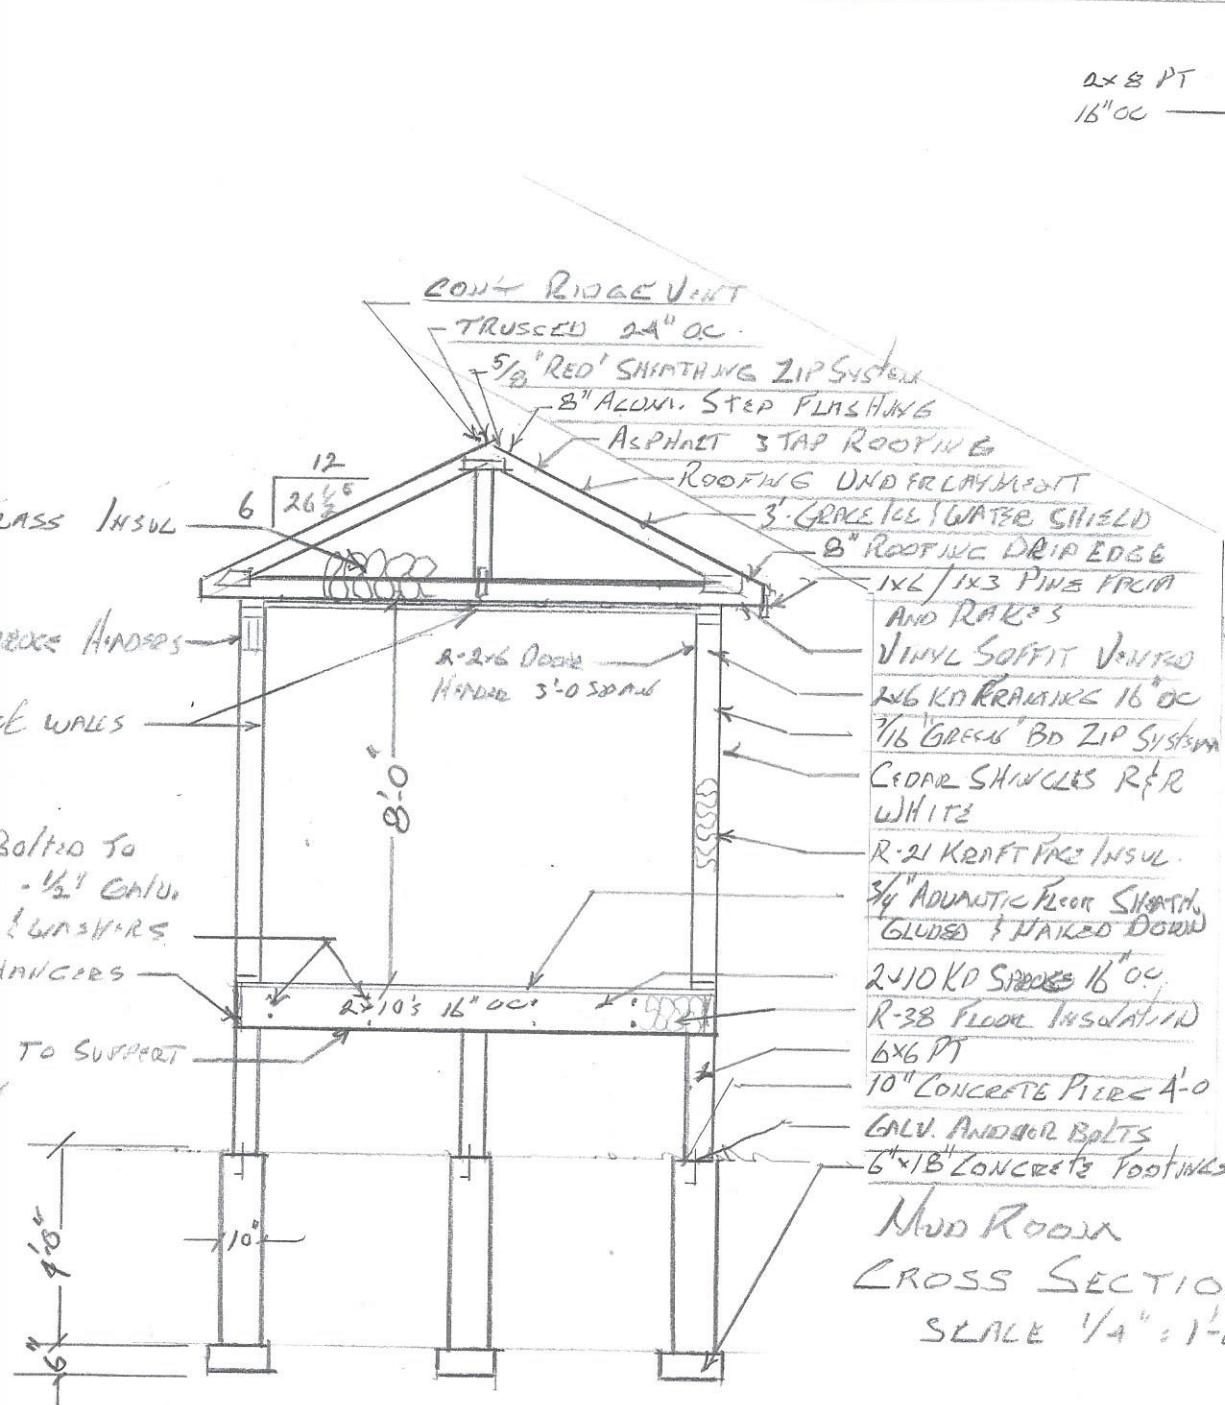 2x8 PT
16" OC
CON'T RIDGE VENT
TRUSSED 24" OC.
5/8 'RED' SHEATHING ZIP SYSTEM
8" ALUM. STEP FLASHING
ASPHALT 3 TAP ROOFING
ROOFING UNDERLAYMENT
3' GRACE ICE & WATER SHIELD
8" ROOFING DRIP EDGE
1x6/1x3 PINE FACIA
AND RAKES
VINYL SOFFIT VENTED
2x6 KD FRAMING 16" OC
7/16 'GREEN' BD ZIP SYSTEM
CEDAR SHINGLES R&R
WHITE
R-21 KRAFT FACE INSUL.
3/4" ADVANTIC FLOOR SHEATH.
GLUDED & NAILED DOWN
2x10 KD SPRUCE 16" OC,
R-38 FLOOR INSULATION
6x6 PT
10" CONCRETE PIERS 4'-0
GALV. ANCHOR BOLTS
6"x18" CONCRETE FOOTINGS
12
6
26 1/2
LASS INSUL
HEADERS
WALLS
2-2x6 DOOR
HEADER 3'-0 SPAN
8'-0"
BOLTED TO
- 1/2" GALV.
& WASHERS
HANGERS
2x10's 16" OC
TO SUPPORT
4'-0"
10"
6"
MUD ROOM
CROSS SECTIO
SCALE 1/4" = 1'-